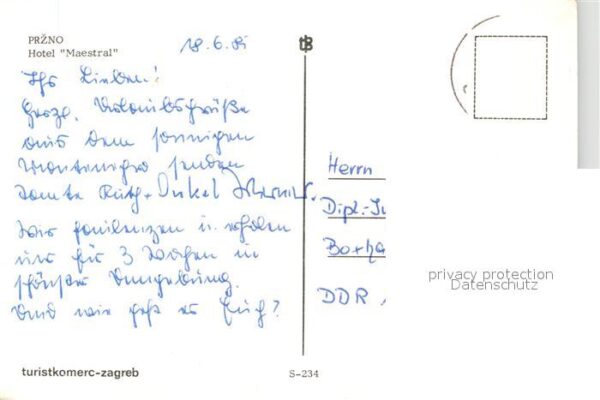 PRŽNO
Hotel "Maestral"
18.6.85
Ihr Lieben!
Herzl. Urlaubsgrüße
aus dem sonnigen
Montenegro senden
Tante Ruth + Onkel
Wir faulenzen u. erholen
uns für 3 Wochen in
schönster Umgebung.
Und wie geht es Euch?
Herrn
Dipl.-I
DDR
privacy protection
Datenschutz
turistkomerc-zagreb
S-234